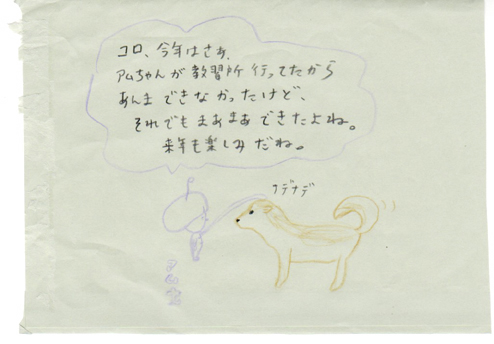 コロ、今年はさぁ、
アムちゃんが教習所行ってたから
あんまできなかったけど、
それでもまあまあできたよね。
来年も楽しみだね。
ナデナデ